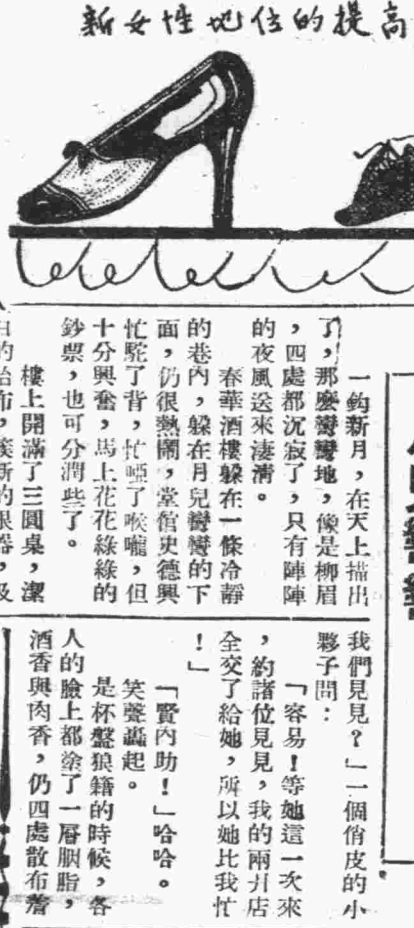 新女性地位的提高
一鈎新月，在天上描出
了，那麼彎彎地，像是柳眉
，四處都沉寂了，只有陣陣
的夜風送來淒清。
春華酒樓躲在一條冷靜
的巷內，躲在月兒彎彎的下
面，仍很熱鬧，堂館史德興
忙駝了背，忙啞了喉嚨，但
十分興奮，馬上花花綠綠的
鈔票，也可分潤些了。
樓上開滿了三圓桌，潔
我們見見？」一個俏皮的小
夥子問：
「容易！等她這一次來
，約諸位見見，我的兩爿店
全交了給她，所以她比我忙
！」
「賢內助！」哈哈。
笑聲轟起。
是杯盤狼籍的時候，各
人的臉上都塗了一層胭脂，
酒香與肉香，仍四處散布着